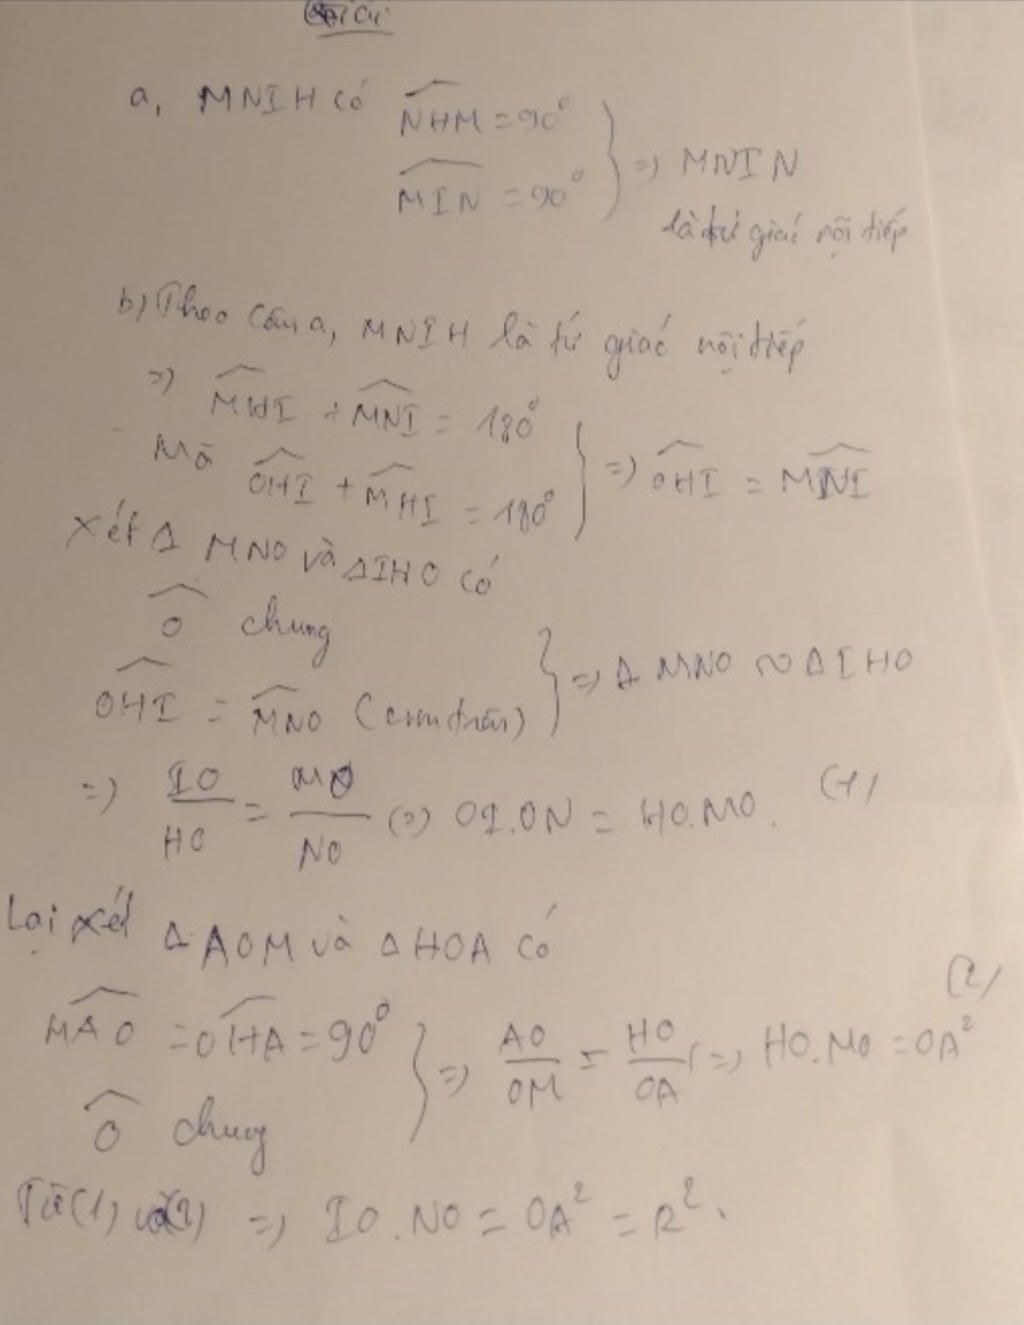 a, MNIH có NHM = 90°
MIN = 90° } => MNIN
là tứ giác nội tiếp
b, Theo câu a, MNIH là tứ giác nội tiếp
=> MHI + MNI = 180°
Mà OHI + MHI = 180° } => OHI = MNI
Xét Δ MNO và ΔIHO có
O chung
OHI = MNO (cmtrên) } => Δ MNO ~ Δ IHO
=> IO/HO = MO/NO (=) OI.ON = HO.MO. (1)
Lại xét Δ AOM và Δ HOA có
MAO = OHA = 90°
O chung } => AO/OM = HO/OA (=) HO.MO = OA² (2)
Từ (1) và (2) => IO.NO = OA² = R².